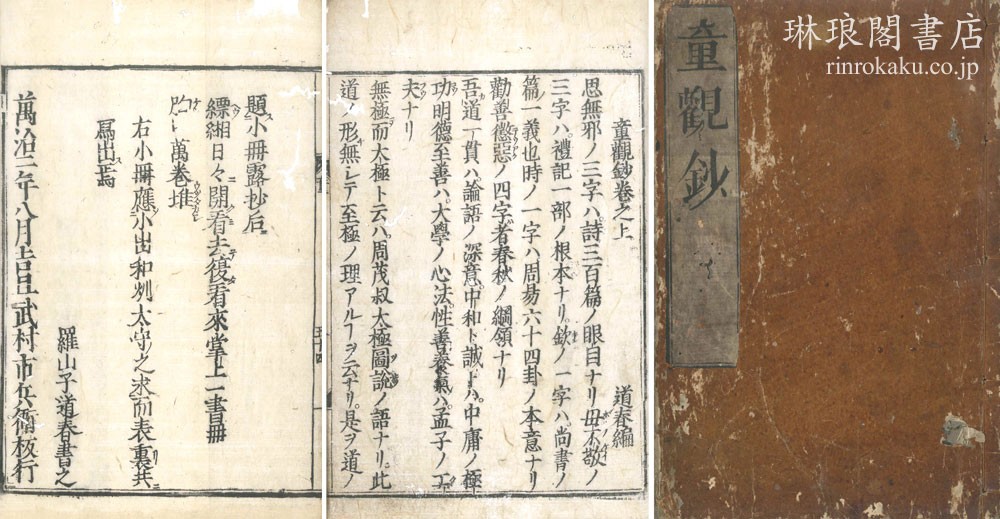 琳琅閣書店
rinrokaku.co.jp
童觀鈔
童觀鈔卷之上
道春編
思無邪ノ三字ハ詩三百篇ノ眼目ナリ毋不敬ノ
三字ハ禮記一部ノ根本ナリ欽ノ一字ハ尚書ノ
篇一義也時ノ一字ハ周易六十四卦ノ本意ナリ
勸善懲惡ノ四字者春秋ノ綱領ナリ
吾道一貫ハ論語ノ深意中和ト誠トハ中庸ノ極
功明德至善ハ大學ノ心法性善養氣ハ孟子ノ工
夫ナリ
無極而太極ト云ハ周茂叔太極圖說ノ語ナリ此
道ノ形無シテ至極ノ理アルヿヲ云ナリ是ヲ道ノ
題小冊露抄后
縹緗日々開看去復看來掌上一書冊
萬卷堆
右小冊應小出和州太守之求而表裏共
寫出焉
羅山子道春書之
萬治三年八月吉旦武村市兵衛板行